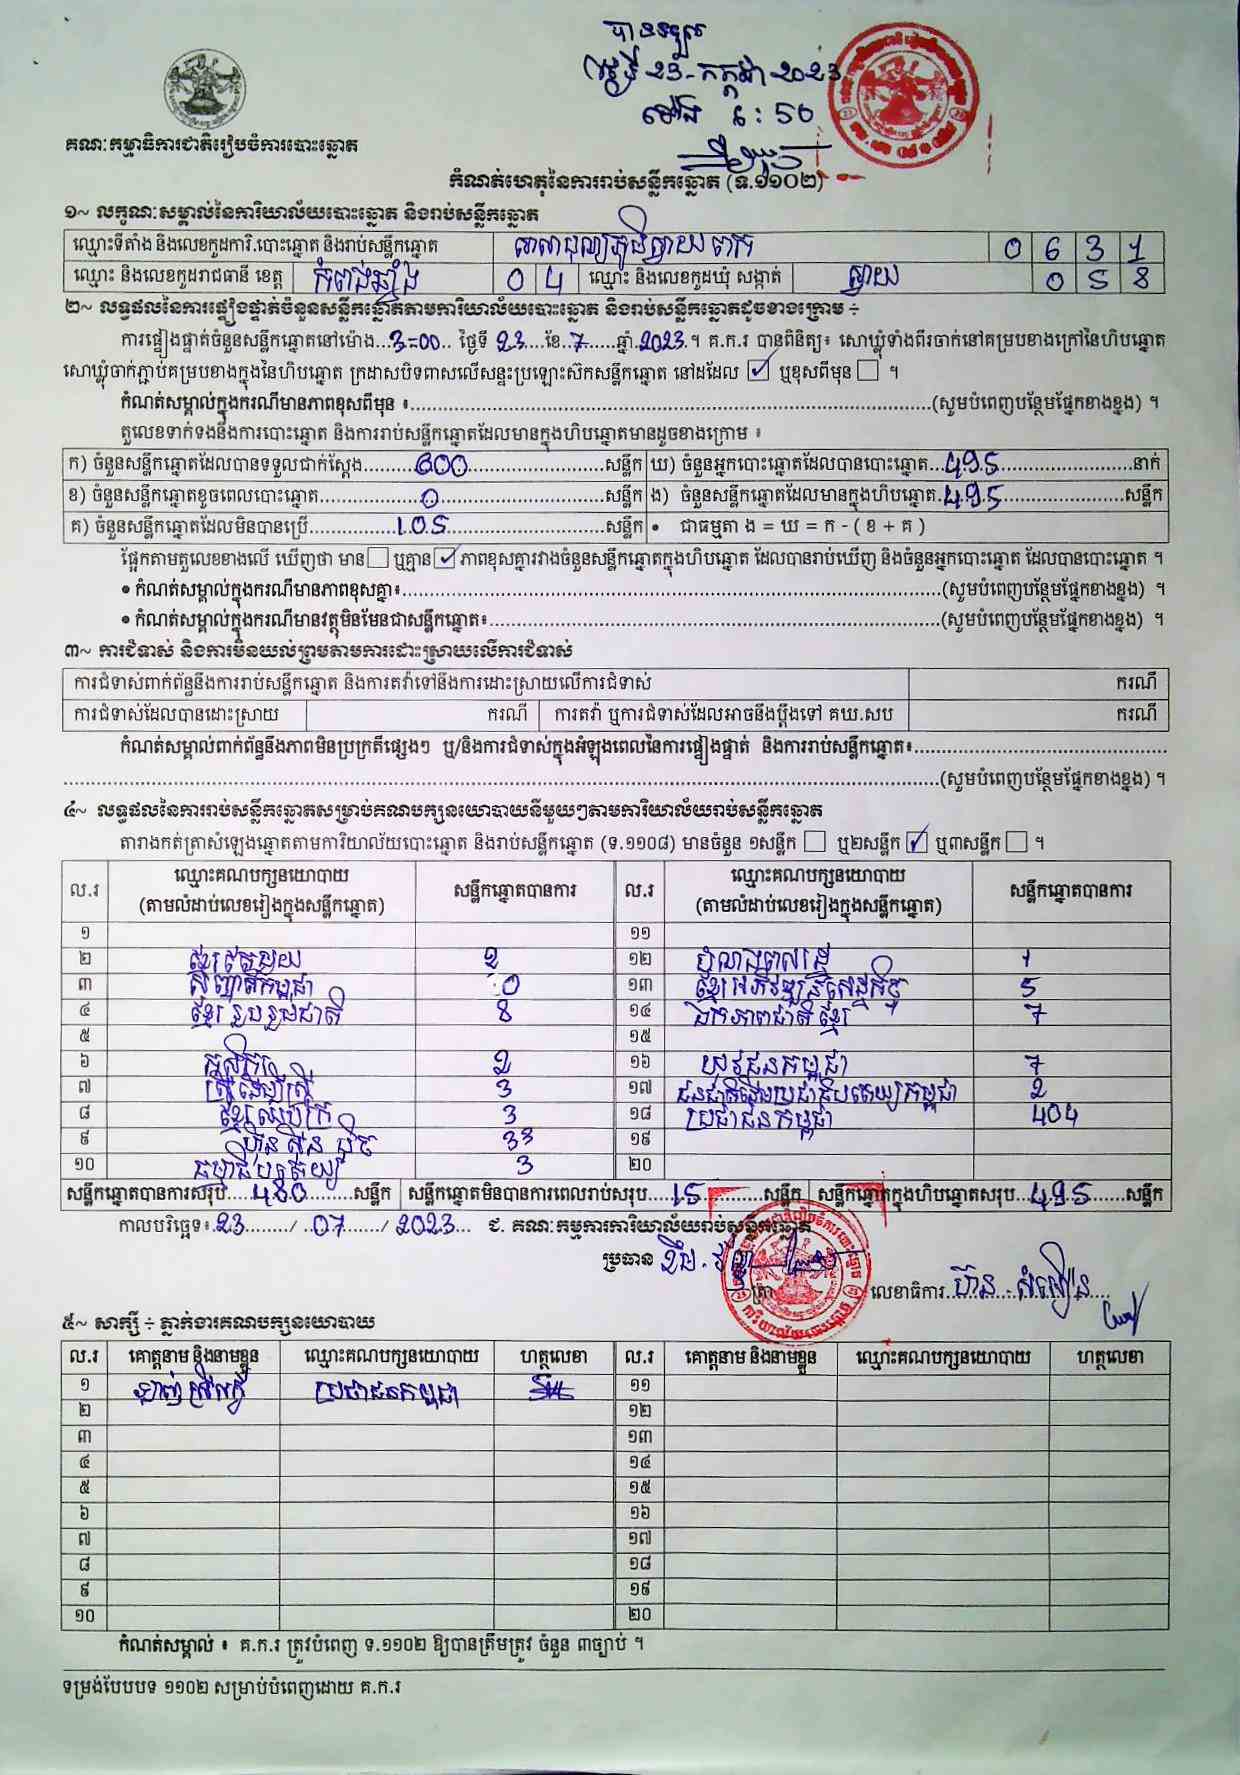 បានទទួល
ថ្ងៃទី 23-កក្កដា 2023
ម៉ោង ៤: 50
គណៈកម្មាធិការជាតិរៀបចំការបោះឆ្នោត
កំណត់ហេតុនៃការរាប់សន្លឹកឆ្នោត (ទ.១១០២)
១~ លក្ខណៈសម្គាល់នៃការិយាល័យបោះឆ្នោត និងរាប់សន្លឹកឆ្នោត
ឈ្មោះទីតាំង និងលេខកូដការិ.បោះឆ្នោត និងរាប់សន្លឹកឆ្នោត 0 6 3 1
ឈ្មោះ និងលេខកូដរាជធានី ខេត្ត កំពង់ឆ្នាំង 0 4 ឈ្មោះ និងលេខកូដឃុំ សង្កាត់ ស្វាយ 0 5 8
២~ លទ្ធផលនៃការផ្ទៀងផ្ទាត់ចំនួនសន្លឹកឆ្នោតតាមការិយាល័យបោះឆ្នោត និងរាប់សន្លឹកឆ្នោតដូចខាងក្រោម ÷
ការផ្ទៀងផ្ទាត់ចំនួនសន្លឹកឆ្នោតនៅម៉ោង...3-00... ថ្ងៃទី 23....ខែ..7......ឆ្នាំ.2023.។ គ.ក.រ បានពិនិត្យ៖ សោឃ្លុំទាំងពីរចាក់នៅគម្របខាងក្រៅនៃហិបឆ្នោត
សោឃ្លុំចាក់ភ្ជាប់គម្របខាងក្នុងនៃហិបឆ្នោត ក្រដាសបិទពាសលើសន្ទះប្រឡោះស៊កសន្លឹកឆ្នោត នៅដដែល ☑ ឬខុសពីមុន ☐ ។
កំណត់សម្គាល់ក្នុងករណីមានភាពខុសពីមុន ៖..........(សូមបំពេញបន្ថែមផ្នែកខាងខ្នង) ។
តួលេខទាក់ទងនឹងការបោះឆ្នោត និងការរាប់សន្លឹកឆ្នោតដែលមានក្នុងហិបឆ្នោតមានដូចខាងក្រោម ៖
ក) ចំនួនសន្លឹកឆ្នោតដែលបានទទួលជាក់ស្តែង..........600..........សន្លឹក ឃ) ចំនួនអ្នកបោះឆ្នោតដែលបានបោះឆ្នោត...495..........នាក់
ខ) ចំនួនសន្លឹកឆ្នោតខូចពេលបោះឆ្នោត..........0..........សន្លឹក ង) ចំនួនសន្លឹកឆ្នោតដែលមានក្នុងហិបឆ្នោត.495..........សន្លឹក
គ) ចំនួនសន្លឹកឆ្នោតដែលមិនបានប្រើ..........105..........សន្លឹក • ជាធម្មតា ង = ឃ = ក - ( ខ + គ )
ផ្អែកតាមតួលេខខាងលើ ឃើញថា មាន ☐ ឬគ្មាន ☑ ភាពខុសគ្នារវាងចំនួនសន្លឹកឆ្នោតក្នុងហិបឆ្នោត ដែលបានរាប់ឃើញ និងចំនួនអ្នកបោះឆ្នោត ដែលបានបោះឆ្នោត ។
• កំណត់សម្គាល់ក្នុងករណីមានភាពខុសគ្នា៖..........(សូមបំពេញបន្ថែមផ្នែកខាងខ្នង) ។
• កំណត់សម្គាល់ក្នុងករណីមានវត្ថុមិនមែនជាសន្លឹកឆ្នោត៖..........(សូមបំពេញបន្ថែមផ្នែកខាងខ្នង) ។
៣~ ការជំទាស់ និងការមិនយល់ព្រមតាមការដោះស្រាយលើការជំទាស់
ការជំទាស់ពាក់ព័ន្ធនឹងការរាប់សន្លឹកឆ្នោត និងការតវ៉ាទៅនឹងការដោះស្រាយលើការជំទាស់ ករណី
ការជំទាស់ដែលបានដោះស្រាយ ករណី ការតវ៉ា ឬការជំទាស់ដែលអាចនឹងប្តឹងទៅ គឃ.សប ករណី
កំណត់សម្គាល់ពាក់ព័ន្ធនឹងភាពមិនប្រក្រតីផ្សេងៗ ឬ/និងការជំទាស់ក្នុងអំឡុងពេលនៃការផ្ទៀងផ្ទាត់ និងការរាប់សន្លឹកឆ្នោត៖..........
..........(សូមបំពេញបន្ថែមផ្នែកខាងខ្នង) ។
៤~ លទ្ធផលនៃការរាប់សន្លឹកឆ្នោតសម្រាប់គណបក្សនយោបាយនីមួយៗតាមការិយាល័យរាប់សន្លឹកឆ្នោត
តារាងកត់ត្រាសំឡេងឆ្នោតតាមការិយាល័យបោះឆ្នោត និងរាប់សន្លឹកឆ្នោត (ទ.១១០៨) មានចំនួន ១សន្លឹក ☐ ឬ២សន្លឹក ☑ ឬ៣សន្លឹក ☐ ។
ល.រ ឈ្មោះគណបក្សនយោបាយ (តាមលំដាប់លេខរៀងក្នុងសន្លឹកឆ្នោត) សន្លឹកឆ្នោតបានការ ល.រ ឈ្មោះគណបក្សនយោបាយ (តាមលំដាប់លេខរៀងក្នុងសន្លឹកឆ្នោត) សន្លឹកឆ្នោតបានការ
១ ១១
២ ខ្មែរតែមួយ 2 ១២ 1
៣ សញ្ជាតិកម្ពុជា 0 ១៣ ខ្មែរអភិវឌ្ឍន៍សេដ្ឋកិច្ច 5
៤ ខ្មែររួបរួមជាតិ 8 ១៤ ឯកភាពជាតិខ្មែរ 7
៥ ១៥
៦ កសិករ 2 ១៦ យុវជនកម្ពុជា 7
៧ ស្ត្រីដើម្បីស្ត្រី 3 ១៧ ជនជាតិដើមប្រជាធិបតេយ្យកម្ពុជា 2
៨ ខ្មែរឈប់ក្រ 3 ១៨ ប្រជាជនកម្ពុជា 404
៩ ហ៊្វុនស៊ិនប៉ិច 33 ១៩
១០ ធម្មាធិបតេយ្យ 3 ២០
សន្លឹកឆ្នោតបានការសរុប....480........សន្លឹក សន្លឹកឆ្នោតមិនបានការពេលរាប់សរុប....15........សន្លឹក សន្លឹកឆ្នោតក្នុងហិបឆ្នោតសរុប...495......សន្លឹក
កាលបរិច្ឆេទ៖.23......../..07....../ 2023... ជ. គណៈកម្មការការិយាល័យរាប់សន្លឹកឆ្នោត
ប្រធាន
ត្រា លេខាធិការ
៥~ សាក្សី ÷ ភ្នាក់ងារគណបក្សនយោបាយ
ល.រ គោត្តនាម និងនាមខ្លួន ឈ្មោះគណបក្សនយោបាយ ហត្ថលេខា ល.រ គោត្តនាម និងនាមខ្លួន ឈ្មោះគណបក្សនយោបាយ ហត្ថលេខា
១ ប្រជាជនកម្ពុជា ១១
២ ១២
៣ ១៣
៤ ១៤
៥ ១៥
៦ ១៦
៧ ១៧
៨ ១៨
៩ ១៩
១០ ២០
កំណត់សម្គាល់ ៖ គ.ក.រ ត្រូវបំពេញ ទ.១១០២ ឱ្យបានត្រឹមត្រូវ ចំនួន ៣ច្បាប់ ។
ទម្រង់បែបបទ ១១០២ សម្រាប់បំពេញដោយ គ.ក.រ